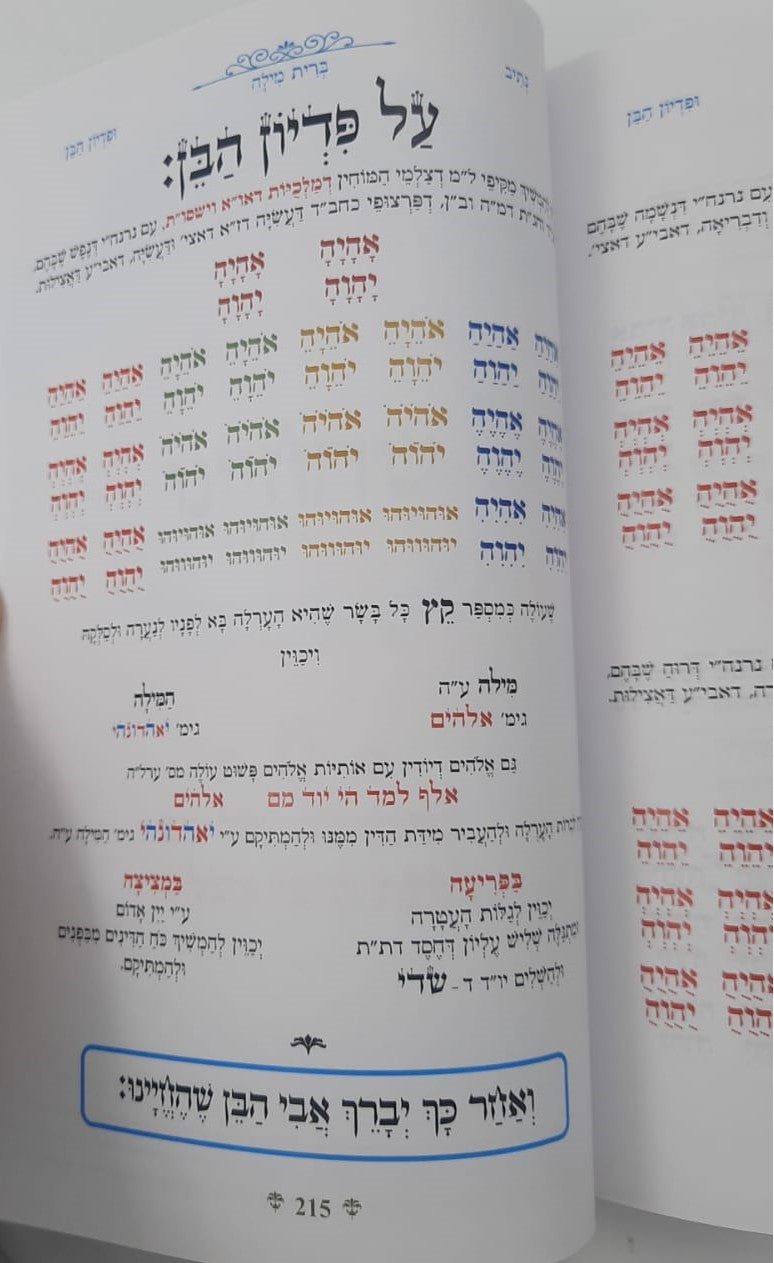 נְתִיב
בְּרִית מִילָה
וּפִדְיוֹן הַבֵּן
עַל פִּדְיוֹן הַבֵּן:
מַקִּיפֵי ל"מ דְצַלְמֵי הַמּוֹחִין דְמַלְכֻיּוֹת דאו"א וישסו"ת,
דמ"ה וב"ן, דְפַרְצוּפֵי כחב"ד דַּעֲשִׂיָּה דז"א דאצי' וְדַעֲשִׂיָּה, דאבי"ע דַאֲצִילוּת. עִם נרנח"י דְּנֶפֶשׁ שֶׁבָּהֶם,
אָהָיָהָ אָהָיָהָ
יָהָוָהָ יָהָוָהָ
אַהַיַהַ אֵהֵיֵהֵ אֵהֵיֵהֵ אֹהֵיָהֵ אֹהֵיָהֵ אֵהֵיֵהֵ אֵהֵיֵהֵ
יַהַוַהַ יֵהֵוֵהֵ יֵהֵוֵהֵ יֹהֵוָהֵ יֹהֵוָהֵ יֵהֵוֵהֵ יֵהֵוֵהֵ
אֶהֶיֶהֶ אֹהֹיֹהֹ אֹהֹיֹהֹ אֹהֹיֹהֹ אֹהֹיֹהֹ אְהְיְהְ אְהְיְהְ
יֶהֶוֶהֶ יֹהֹוֹהֹ יֹהֹוֹהֹ יֹהֹוֹהֹ יֹהֹוֹהֹ יְהְוְהְ יְהְוְהְ
אִהִיִהִ אוּהוּיוּהוּ אוּהוּיוּהוּ אוּהוּיוּהוּ אוּהוּיוּהוּ אֻהֻיֻהֻ אֻהֻיֻהֻ
יִהִוִהִ יוּהוּווּהוּ יוּהוּווּהוּ יוּהוּווּהוּ יוּהוּווּהוּ יֻהֻוֻהֻ יֻהֻוֻהֻ
שֶׁעוֹלֶה כְּמִסְפַּר קֵץ כָּל בָּשָׂר שֶׁהִיא הָעָרְלָה בָּא לְפָנָיו לְנַעֲרָהּ וּלְסַלְּקָהּ
וִיכַוֵּין
מִילה ע"ה
גימ' אלהים
הַמִּילָה
גימ' יאהדונהי
גַּם אֱלֹהִים דְיוּדִין עִם אוֹתִיּוֹת אֱלֹהִים פָּשׁוּט עוֹלֶה מס' ערל"ה
אלף למד הי יוד מם אלהים
הָעָרְלָה וּלְהַעֲבִיר מִידַּת הַדִּין מִמֶּנּוּ וּלְהַמְתִּיקָם ע"י יאהדונהי גימ' המילה ע"ה.
בַּפְּרִיעָה
יְכַוֵּין לְגַלּוֹת הָעֲטָרָה
שְׁלִישׁ עֶלְיוֹן דְּחֶסֶד דת"ת
וּלְהַשְׁלִים יו"ד ד - שדי
בַּמְּצִיצָה
ע"י יַיִן אָדוֹם
יְכַוֵּין לְהַמְשִׁיךְ כֹּחַ הַדִּינִים מִבִּפְנִים
וּלְהַמְתִּיקָם.
וְאַחַר כָּךְ יְבָרֵךְ אֲבִי הַבֵּן שֶׁהֶחֱיָינוּ:
215
וּפִדְיוֹן הַבֵּן
עִם נרנח"י דִּנְשָׁמָה שֶׁבָּהֶם
וְדִבְרִיאָה, דאבי"ע דאצי'.
אֵהֵיֵהֵ אֵהֵיֵהֵ
יֵהֵוֵהֵ יֵהֵוֵהֵ
אְהְיְהְ אְהְיְהְ
יְהְוְהְ יְהְוְהְ
אֻהֻיֻהֻ אֻהֻיֻהֻ
יֻהֻוֻהֻ יֻהֻוֻהֻ
נרנח"י דְּרוּחַ שֶׁבָּהֶם,
דאבי"ע דַּאֲצִילוּת.
אֵהֵיֵהֵ אֵהֵיֵהֵ
יֵהֵוֵהֵ יֵהֵוֵהֵ
אְהְיְהְ אְהְיְהְ
יְהְוְהְ
אֻהֻיֻהֻ
יֻהֻוֻהֻ